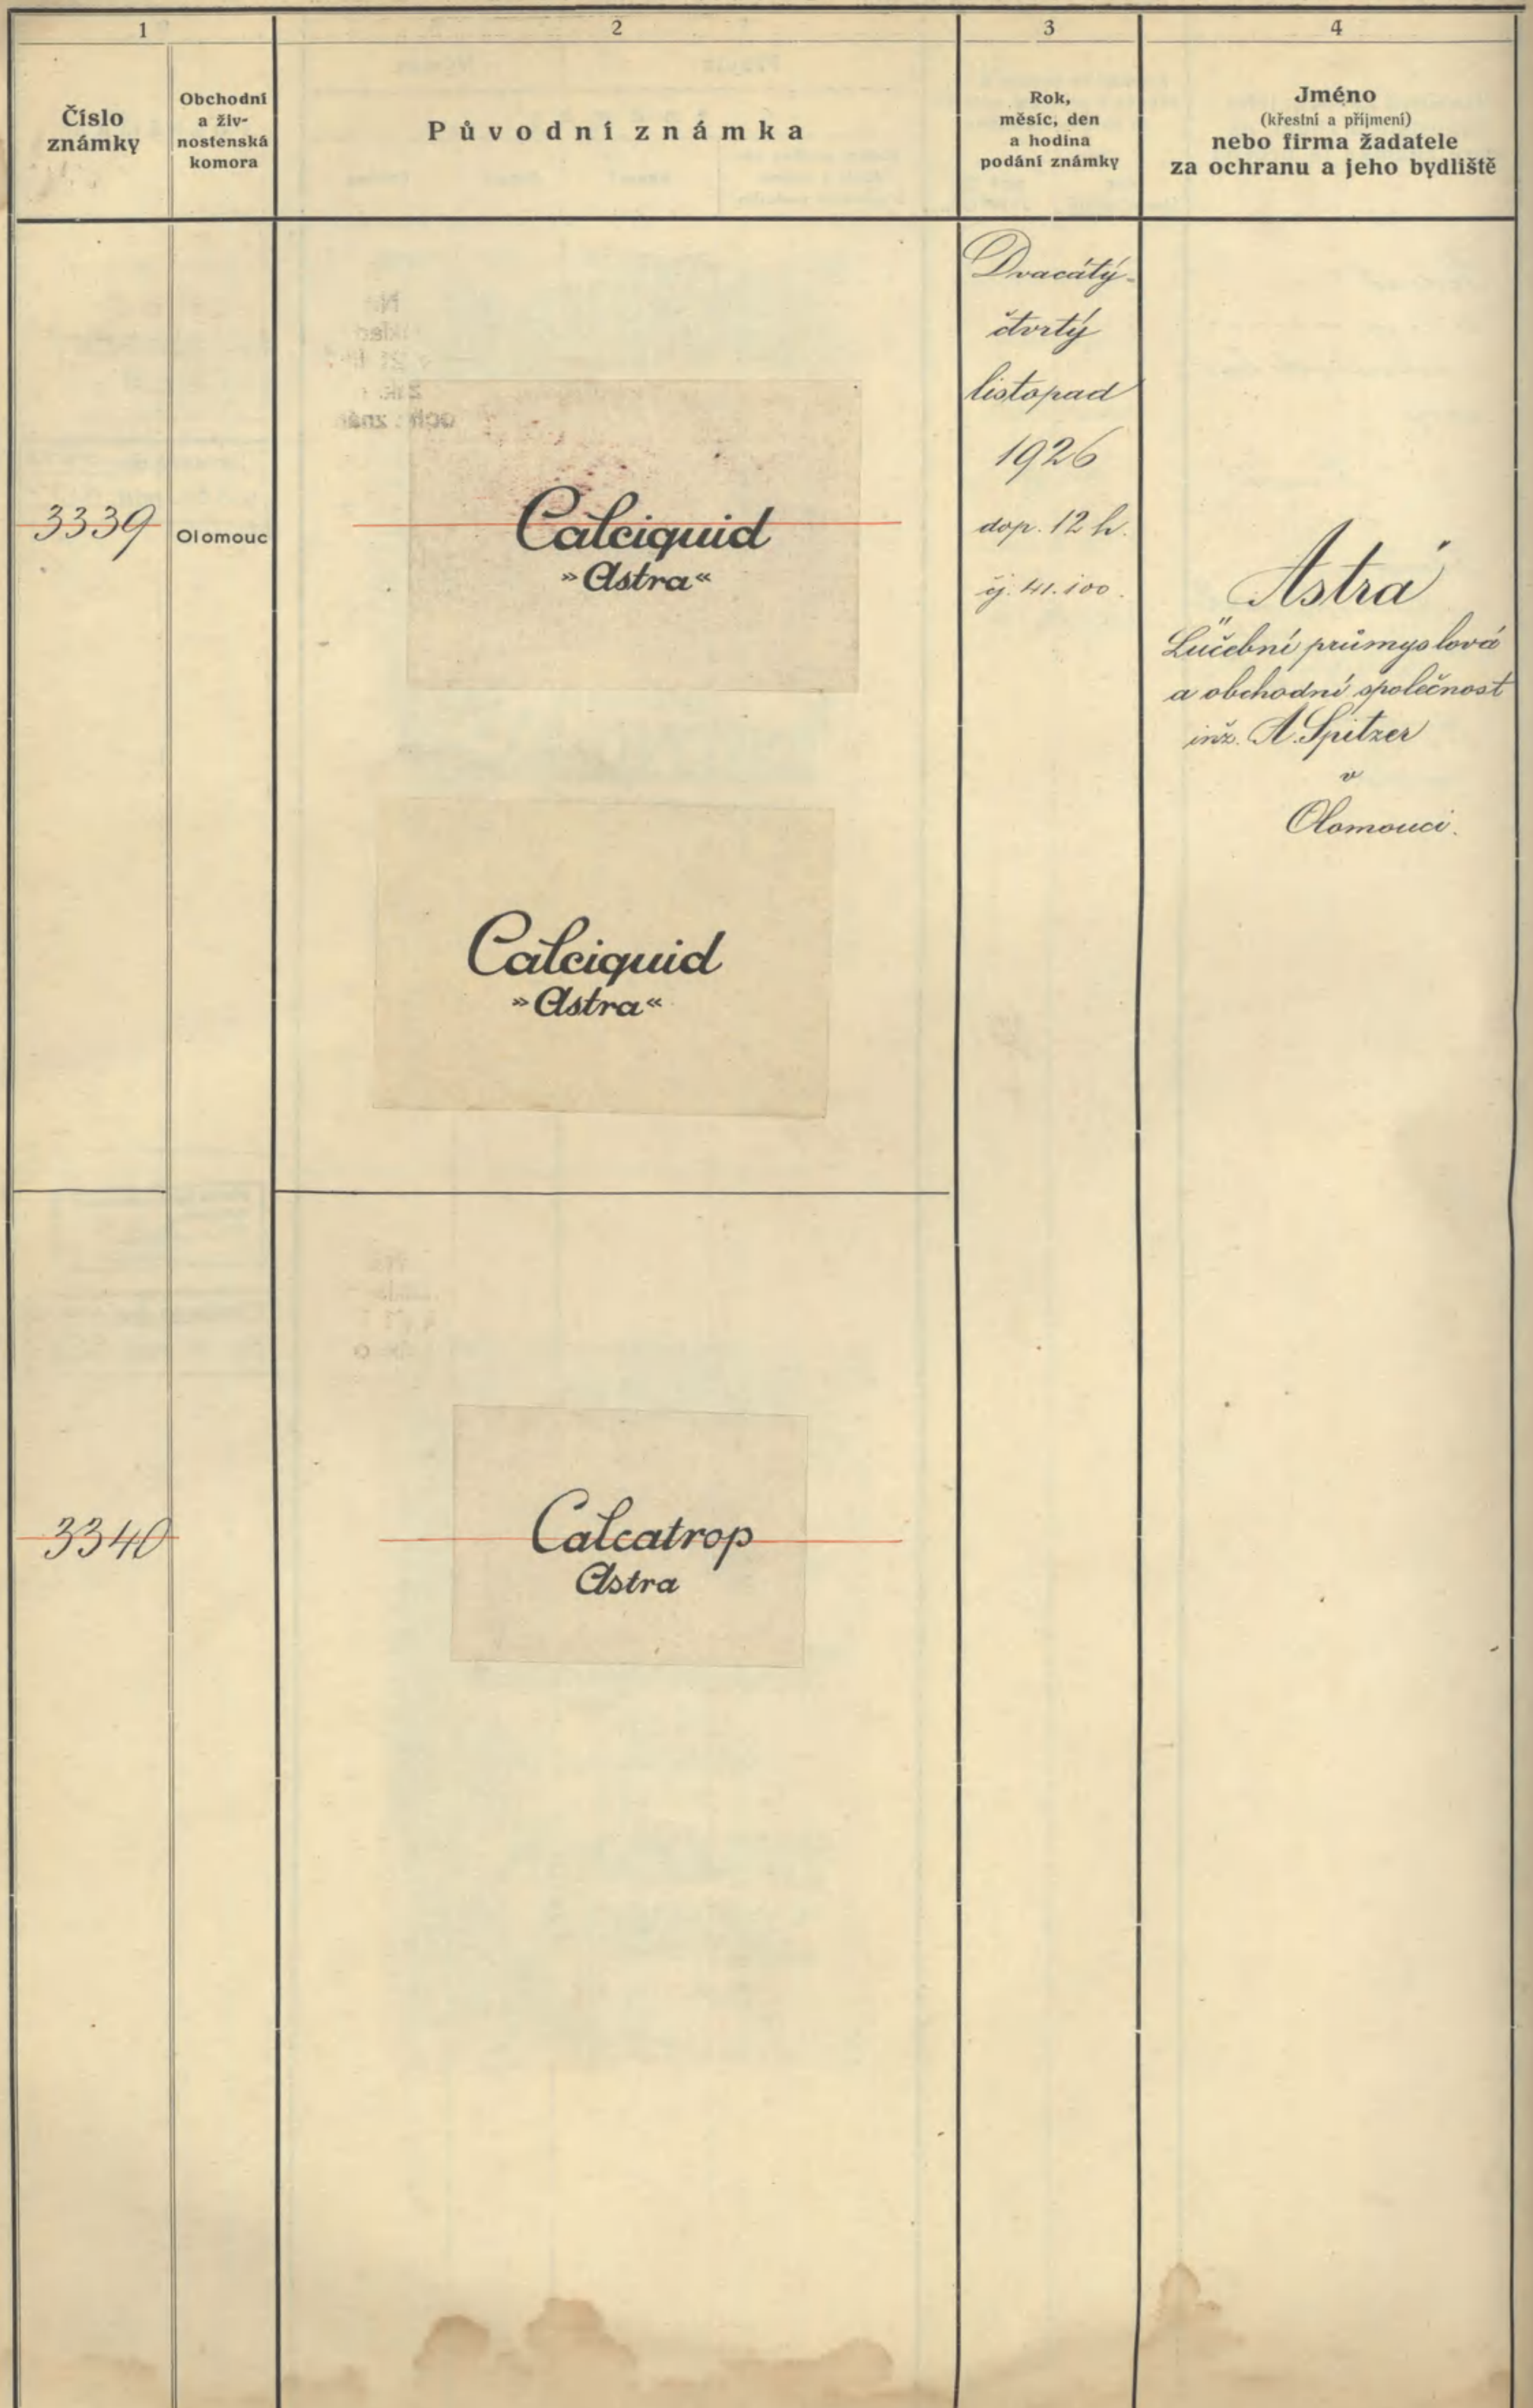 1
2
3
4
Číslo
známky
Obchodní
a živ-
nostenská
komora
Původní známka
Rok,
měsíc, den
a hodina
podání známky
Jméno
(křestní a příjmení)
nebo firma žadatele
za ochranu a jeho bydliště
3339
Olomouc
Calciquid
»Astra«
Dvacátý-
čtvrtý
listopad
1926
dop. 12 h.
čj. 41.100.
"Astra"
Lučební průmyslová
a obchodní společnost
inž. A. Spitzer
v
Olomouci.
Calciquid
»Astra«
3340
Calcatrop
Astra